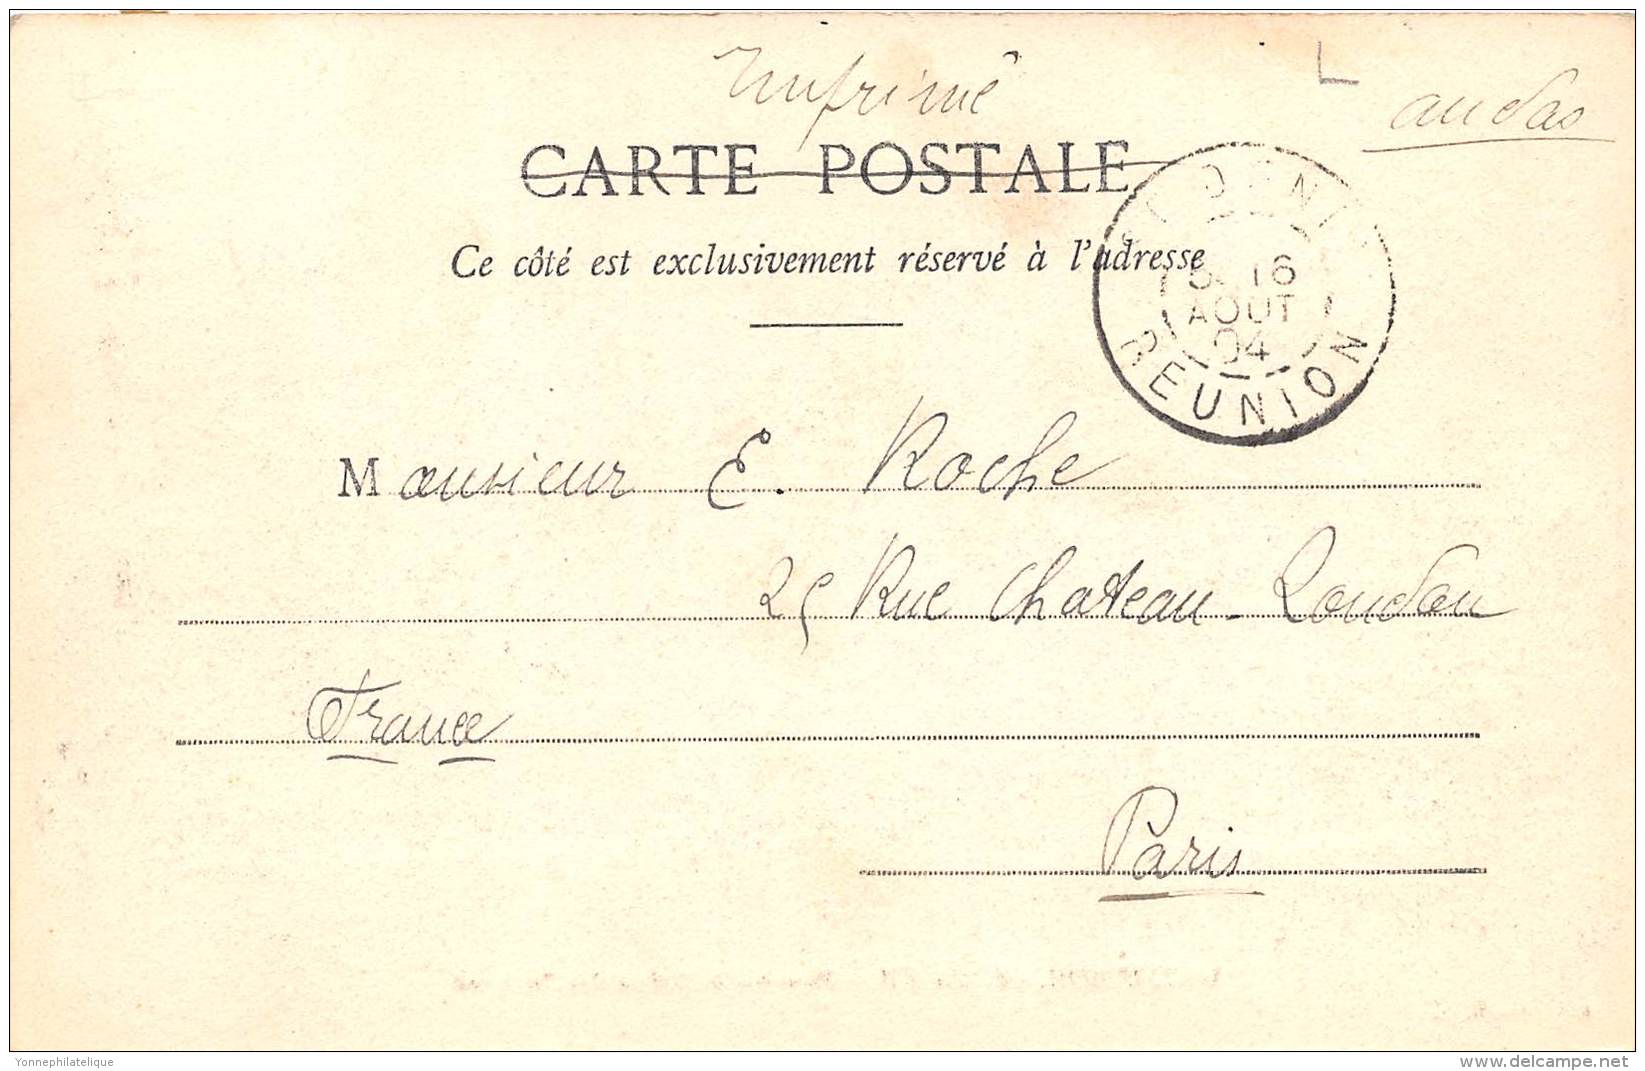 Imprimé
au dos
CARTE POSTALE
Ce côté est exclusivement réservé à l'adresse
ST DENIS
5E 16
AOUT
04
REUNION
Monsieur E. Roche
25 Rue Chateau-Londou
France
Paris
Yonnephilatelique
delcampe.net